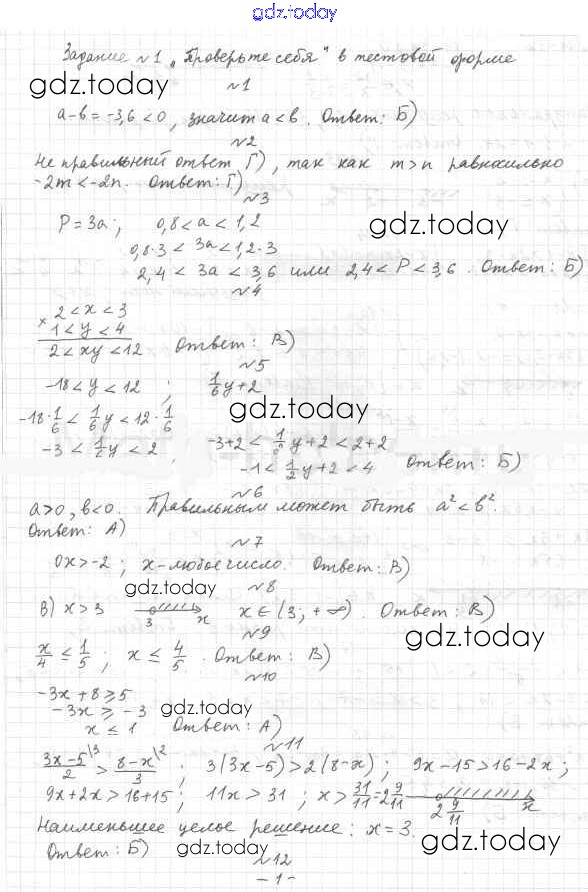 gdz.today
Задание №1 „Проверьте себя" в тестовой форме
gdz.today
№1
a-b = -3,6 < 0, значит a < b. Ответ: Б)
№2
Не правильный ответ Г), так как m > n равносильно
-2m < -2n. Ответ: Г)
№3
P = 3a; 0,8 < a < 1,2
gdz.today
0,8·3 < 3a < 1,2·3
2,4 < 3a < 3,6 или 2,4 < P < 3,6. Ответ: Б)
№4
2 < x < 3
× 1 < y < 4
2 < xy < 12 Ответ: В)
№5
-18 < y < 12 ; 1/6 y + 2
gdz.today
-18·1/6 < 1/6 y < 12·1/6
-3 < 1/6 y < 2 -3+2 < 1/6 y + 2 < 2+2
-1 < 1/2 y + 2 < 4 Ответ: Б)
№6
a > 0, b < 0. Правильным может быть a² < b².
Ответ: А)
№7
0x > -2 ; x - любое число. Ответ: В)
gdz.today
№8
В) x > 3 3 x x ∈ (3; +∞). Ответ: В)
№9
gdz.today
x/4 ≤ 1/5 ; x ≤ 4/5. Ответ: В)
№10
-3x + 8 ≥ 5
-3x ≥ -3 gdz.today
x ≤ 1 Ответ: А)
№11
(3x-5)/2 |3 > (8-x)/3 |2 ; 3(3x-5) > 2(8-x) ; 9x - 15 > 16 - 2x ;
9x + 2x > 16 + 15 ; 11x > 31 ; x > 31/11 = 2 9/11 2 9/11 x
Наименьшее целое решение: x = 3.
gdz.today
Ответ: Б) gdz.today
№12
- 1 -